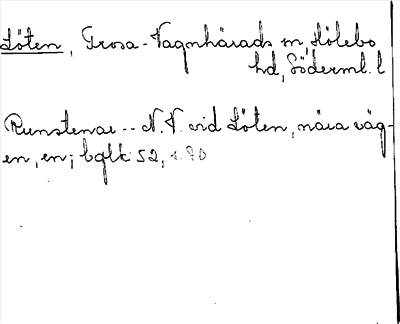 Löten, Trosa-Vagnhärads sn, Hölebo
hd, Söderml. l
Runstenar -- N.V. vid Löten, nära väg-
en, en; bglk 52, s. 90